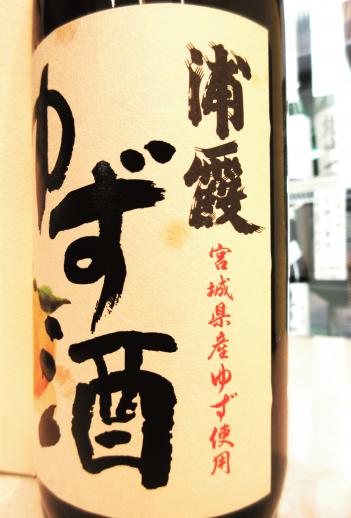 浦霞
宮城県産ゆず使用
ゆず酒